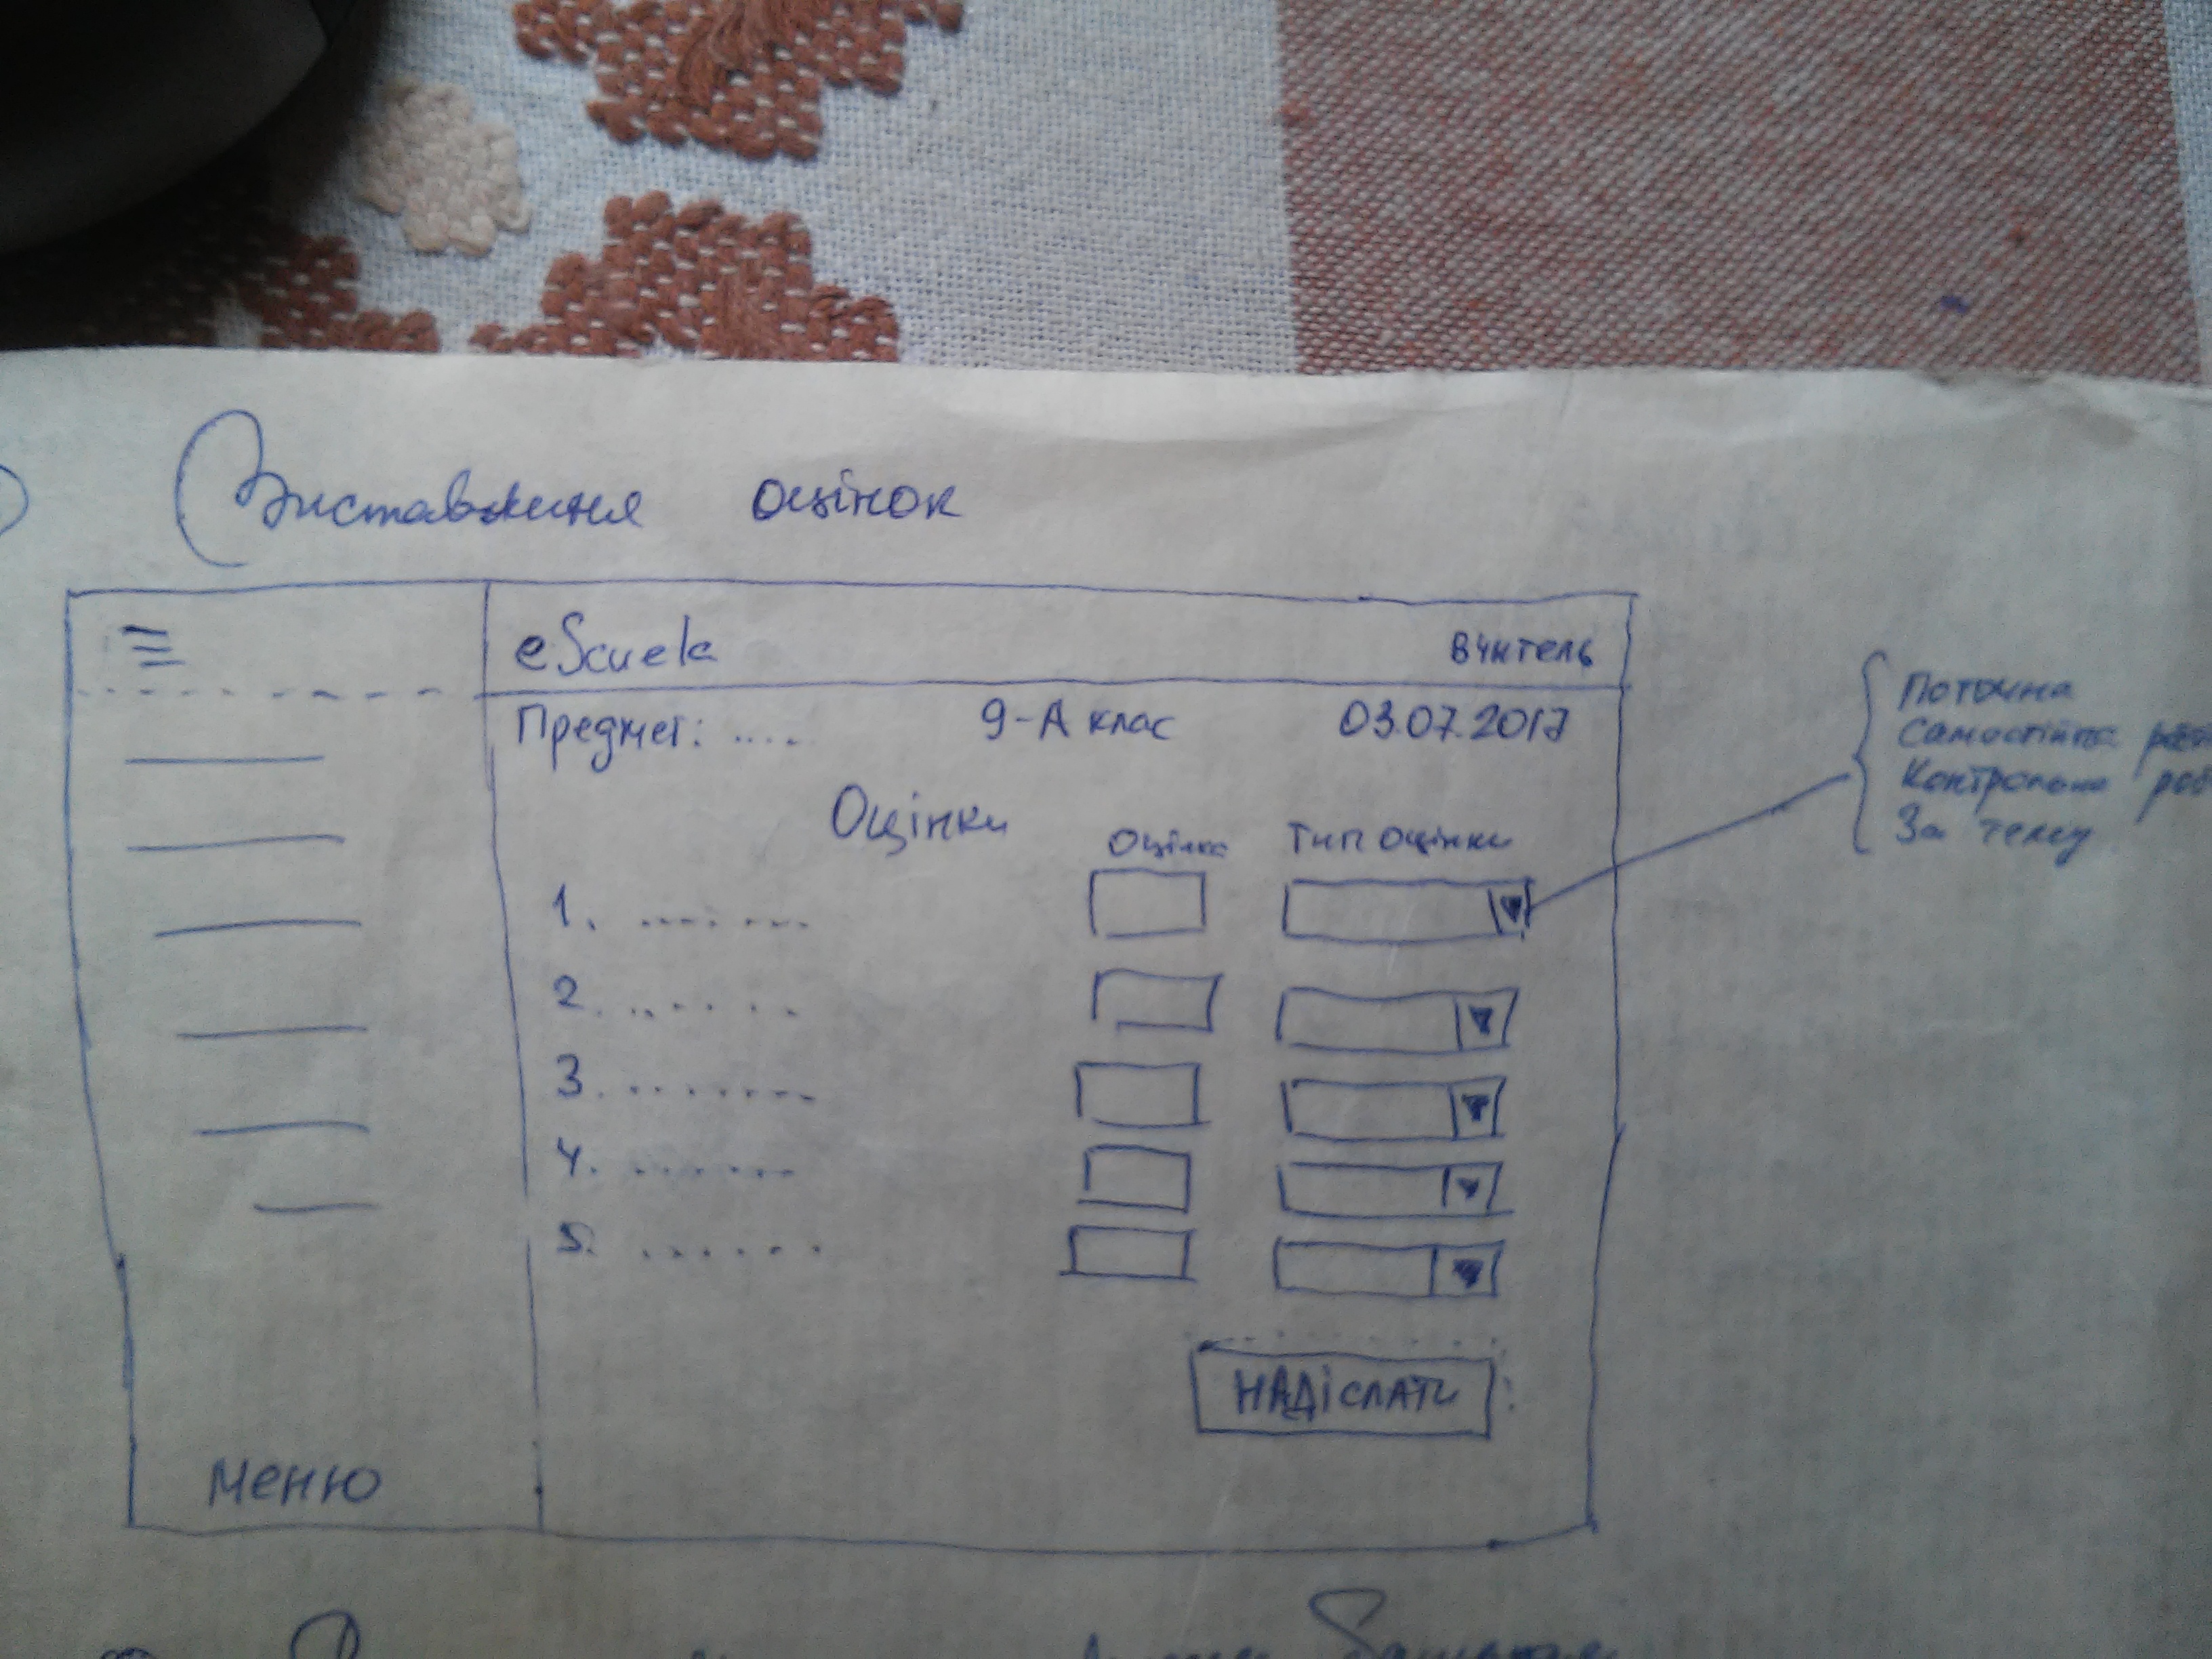 Виставлення оцінок
eScuela вчитель
Предмет: .... 9-А клас 03.07.2017
Оцінки
Оцінка Тип оцінки
1. ........
2. .......
3. ........
4. .......
5. ......
НАДіСЛАТИ
Меню
Поточна
Самостійна
Контрольна
За тему